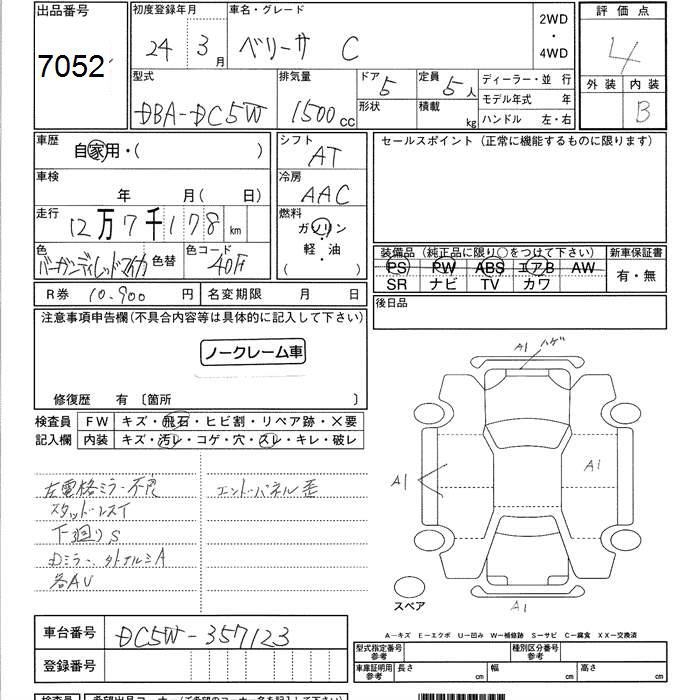 出品番号 初度登録年月 車名・グレード 2WD・4WD 評価点
7052 24 3月 ベリーサ C 4
型式 排気量 ドア 5 定員 5人 ディーラー・並行 外装 内装
DBA-DC5W 1500cc 形状 積載 kg モデル年式 年 B
ハンドル 左・右
車歴 自家用・( ) シフト AT セールスポイント (正常に機能するものに限ります)
車検 年 月( 日) 冷房 AAC
走行 12万7千178km 燃料 ガソリン・軽・油 ( )
色 バーガンディレッドマイカ 色替 色コード 40F
装備品 (純正品に限り○をつけて下さい) 新車保証書
PS PW ABS エアB AW 有・無
SR ナビ TV カワ
R券 10,900円 名変期限 月 日 後日品
注意事項申告欄(不具合内容等は具体的に記入して下さい)
ノークレーム車
修復歴 有 〔箇所 〕
検査員 FW キズ・飛石・ヒビ割・リペア跡・×要
記入欄 内装 キズ・汚レ・コゲ・穴・スレ・キレ・破レ
左電格ミラー不良 エンドパネル歪
スタッドレスT
下廻りS
Dミラー、
各AU
A1 ハゲ
A1
A1
A1
スペア
A-キズ E-エクボ U-凹み W-補修跡 S-サビ C-腐食 XX-交換済
車台番号 DC5W-357123
登録番号
型式指定番号 参考 種別区分番号 参考
車庫証明用 参考 長さ cm 幅 cm 高さ cm